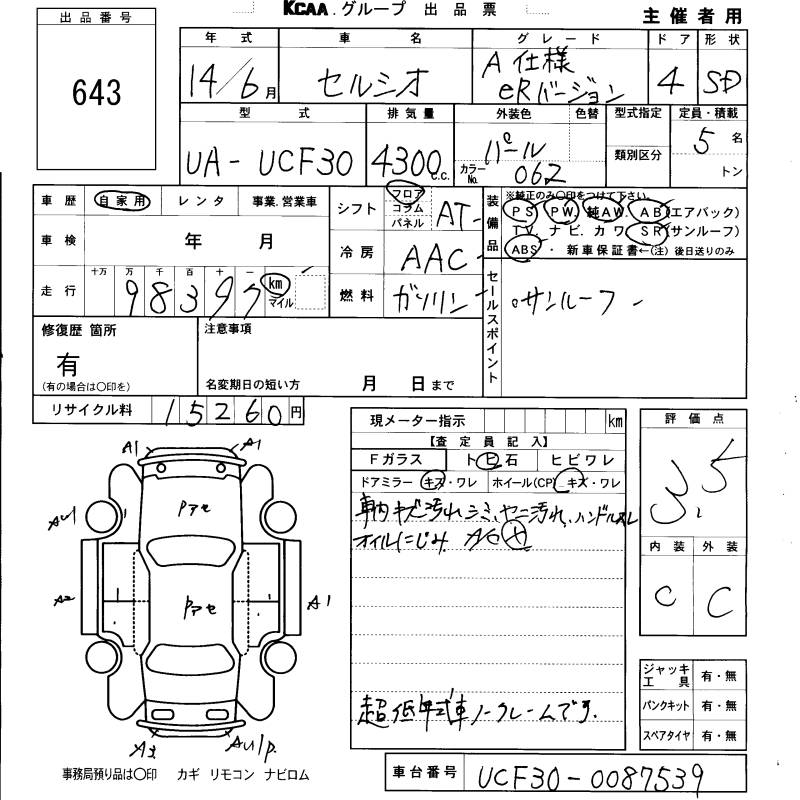 KCAA.グループ 出品票
主催者用
出品番号
643
年式 車名 グレード ドア 形状
14/6月 セルシオ A仕様 eRバージョン 4 SD
型式 排気量 外装色 色替 型式指定 定員・積載
UA-UCF30 4300c.c. パール カラーNo. 062 類別区分 5名
トン
車歴 自家用 レンタ 事業.営業車
車検 年 月
走行 十万 万 千 百 十 一
98397 km マイル
シフト フロア コラム パネル AT
冷房 AAC
燃料 ガソリン
装備品 ※純正のみ〇印をつけて下さい。
PS PW 純AW. AB(エアバック)
TV. ナビ. カワ SR(サンルーフ)
ABS・新車保証書←(注)後日送りのみ
セールスポイント
サンルーフ
修復歴 箇所
有
(有の場合は〇印を)
注意事項
名変期日の短い方 月 日まで
リサイクル料 15260円
現メーター指示 km
【査定員記入】
Fガラス トビ石 ヒビワレ
ドアミラー キズ・ワレ ホイール(CP) キズ・ワレ
車内キズ汚れ シミ、ヤニ汚れ、ハンドルスレ
オイルにじみ A/C
超低年式車ノークレームです.
評価点
3.5
内装 外装
C C
ジャッキ工具 有・無
パンクキット 有・無
スペアタイヤ 有・無
A1 A1
Pアセ
AU1
A2 Pアセ A1
AU1P.
事務局預り品は〇印 カギ リモコン ナビロム
車台番号 UCF30-0087539